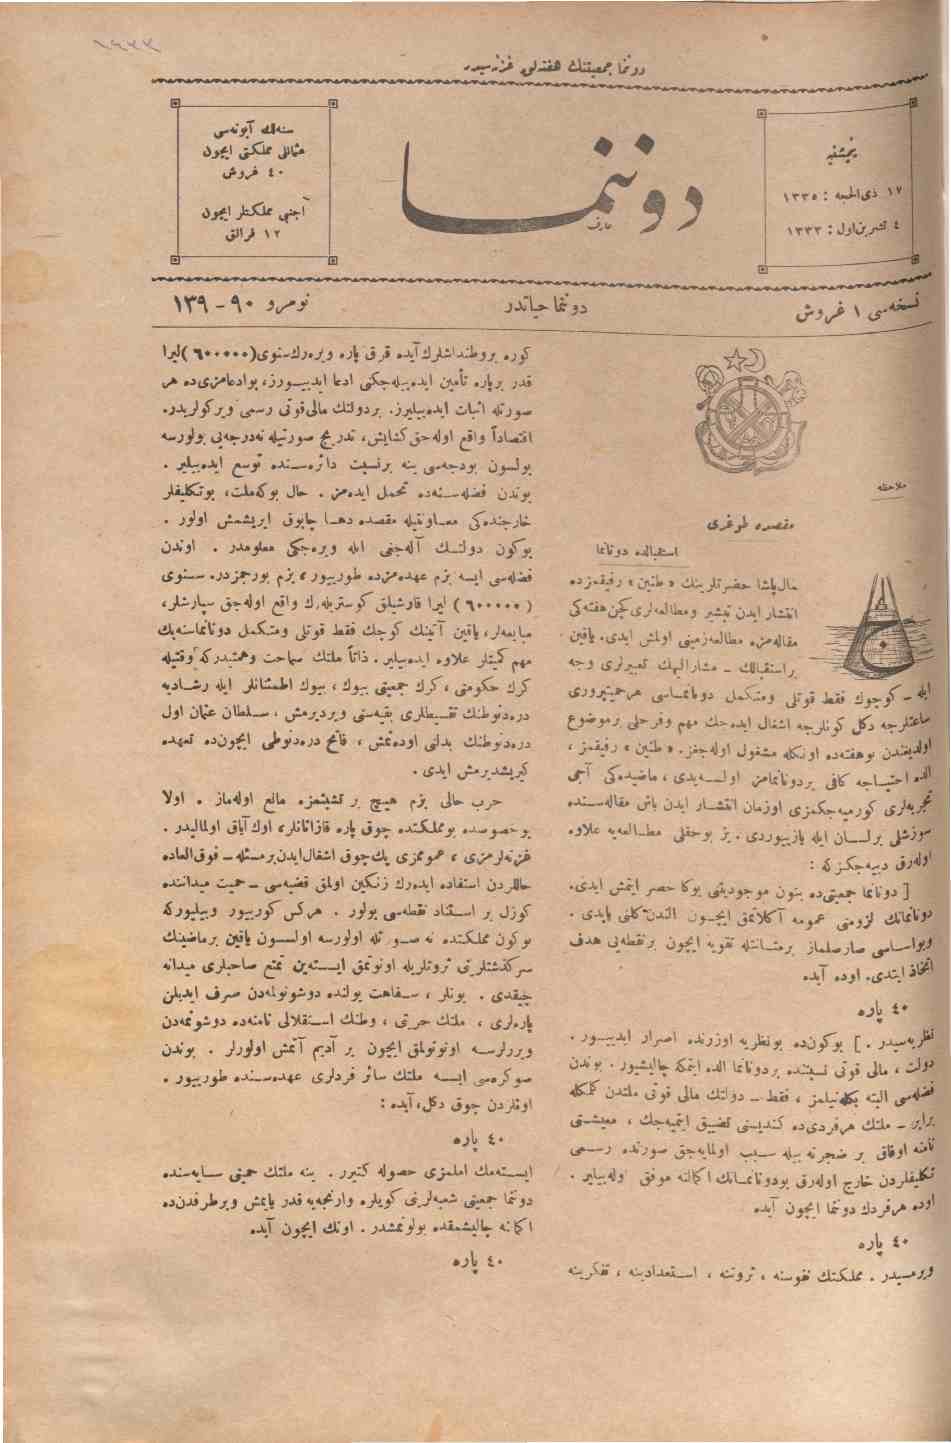 ١٩٣٣
دوننما جمعیتنك هفته‌لق غزته‌سیدر
پنجشنبه
١٧ ذی‌الحجه : ١٣٣٥
٤ تشرین‌اول : ١٣٣٣
دوننما
عارف
سنه‌لك آبونه‌سی
عثمانلی مملكتی ایچون
٤٠ غروش
اجنبی مملكتلر ایچون
١٢ فرانق
نسخه‌سی ١ غروش
دوننما حیاتدر
نومرو ٩٠ - ١٣٩
ملاحظه
مقصده طوغری
استقبالده دوناما
جمال پاشا حضرتلرینك « طنین » رفیقمزده
انتشار ایدن تبشیر ومطالعه‌لری كچن هفته‌كی
مقاله‌مزه مطالعه زمینی اولمش ایدی. یاقین
بر استقبالك - مشارالیهك تعبیرلری وجه
ایله - كوچوك فقط قوتلی ومتكمل دوناماسی هر حمیتپروری
ساعتلرجه دكل كونلرجه اشغال ایده‌جك مهم وفرحلی بر موضوع
اولدیغندن بو هفته‌ده اونكله مشغول اوله‌جغز. « طنین » رفیقمز ،
الده احتیاجه كافی بر دونانمامز اولسه‌یدی ، ماضیده‌كی آجی
تجربه‌لری كورمیه‌جكمزی اوزمان انتشار ایدن باش مقاله‌سنده
سوزشلی بر لسان ایله یازییوردی. بز بو حقلی مطالعه‌یه علاوه
اوله‌رق دییه‌جكز كه :
[ دونانما جمعیتی‌ده بتون موجودیتنی بوكا حصر ایتمش ایدی.
دونانمانك لزومنی عمومه آكلاتمق ایچون الندن كلنی یاپدی .
وبو اساسی صارصلماز بر متانتله تقویه ایچون بر نقطه‌یی هدف
اتخاذ ایتدی. اوده آیده
٤٠ پاره
نظریه‌سیدر . ] بوكون‌ده بو نظریه اوزرنده اصرار ایدییور .
دولت ، مالی قوتی نسبتنده بر دونانما الده ایتمكه چالیشیور. بوندن
فضله‌سی البته بكله‌نیلمز ، فقط - دولتك مالی قوتی ملتدن كلمكله
برابر - ملتك هر فردی‌ده كندیسنی تضییق ایتمیه‌جك ، معیشتی
نامنه اوفاق بر ضجرته بیله سبب اولمایه‌جق صورتده رسمی
تكلیفلردن خارج اوله‌رق بو دونانمانك اكمالنه موفق اوله‌بیلیر .
اوده هر فردك دوننما ایچون آیده
٤٠ پاره
ویرمسیدر . مملكتك نفوسنه ، ثروتنه ، استعدادینه ، تفكرینه
كوره بر وطنداشلرك آیده قرق پاره ویره‌رك سنوی (٦٠٠٠٠٠) لیرا
قدر بر پاره تأمین ایده‌بیله‌جكنی ادعا ایدییورز، بو ادعامزی‌ده هر
صورتله اثبات ایده‌بیلیرز. بر دولتك مالی قوتی رسمی ویركولریدر.
اقتصاداً واقع اوله‌جق كشایش، تدریج صورتیله نه‌درجه‌یی بولورسه
بولسون بودجه‌سی ینه بر نسبت دائره‌سنده توسع ایده‌بیلیر .
بوندن فضله‌سنه‌ده تحمل ایده‌مز . حال بوكه ملت، بو تكلیفلر
خارجنده‌كی معاونتیله مقصده دها چابوق ایریشمش اولور .
بوكون دولتك آله‌جغی ایله ویره‌جكی معلومدر . اوندن
فضله‌سی ایسه بزم عهده‌مزده طورییور، بزم بورجمزدر. سنوی
(٦٠٠٠٠٠) لیرا قارشیلق كوستریله‌رك واقع اوله‌جق سپارشلر،
مبایعه‌لر، یاقین آتینك كوچك فقط قوتلی ومتكمل دونانماسنه پك
مهم كمیتلر علاوه ایده‌بیلیر. ذاتاً ملتك سماحت وهمتیدر كه وقتیله
كرك حكومتی ، كرك جمعیتی بیوك ، بیوك اطمئنانلر ایله رشادیه
دره‌دنوطنك تقسیطلری بقیه‌سنی ویردیرمش ، سلطان عثمان اول
دره‌دنوطنك بدلنی اوده‌تمش ، فاتح دره‌دنوطی ایچون‌ده تعهده
كیریشدیرمش ایدی .
حرب حالی بزم هیچ بر تشبثمزه مانع اوله‌ماز . اولا
بو خصوصده بو مملكتده چوق پاره قازانانلر، اوك آیاق اولمالیدر.
غزته‌لرمزی ، عموممزی پك چوق اشغال ایدن بر مسئله - فوق‌العاده
حاللردن استفاده ایده‌رك زنكین اولمق قضیه‌سی - حمیت میداننده
كوزل بر استناد نقطه‌سی بولور . هركس كورییور وبیلیوركه
بوكون مملكتده نه صورتله اولورسه اولسون یاقین بر ماضینك
سركذشتلرینی ثروتلریله اونوتمق ایسته‌ین تمتع صاحبلری میدانه
چیقدی . بونلر ، سفاهت یولنده دوشونولمه‌دن صرف ایدیلن
پاره‌لری ، ملتك حریتی ، وطنك استقلالی نامنه‌ده دوشونمه‌دن
ویررلرسه اونوتولمق ایچون بر آدیم آتمش اولورلر . بوندن
صوكره‌سی ایسه ملتك سائر فردلری عهده‌سنده طورییور .
اونلردن چوق دكل، آیده :
٤٠ پاره
ایسته‌مك املمزی حصوله كتیرر . ینه ملتك حمیتی سایه‌سنده
دوننما جمعیتی شعبه‌لرینی كویلره وارنجه‌یه قدر یایمش وبر طرفدن‌ده
اكمانه چالیشمقده بولونمشدر . اونك ایچون آیده
٤٠ پاره